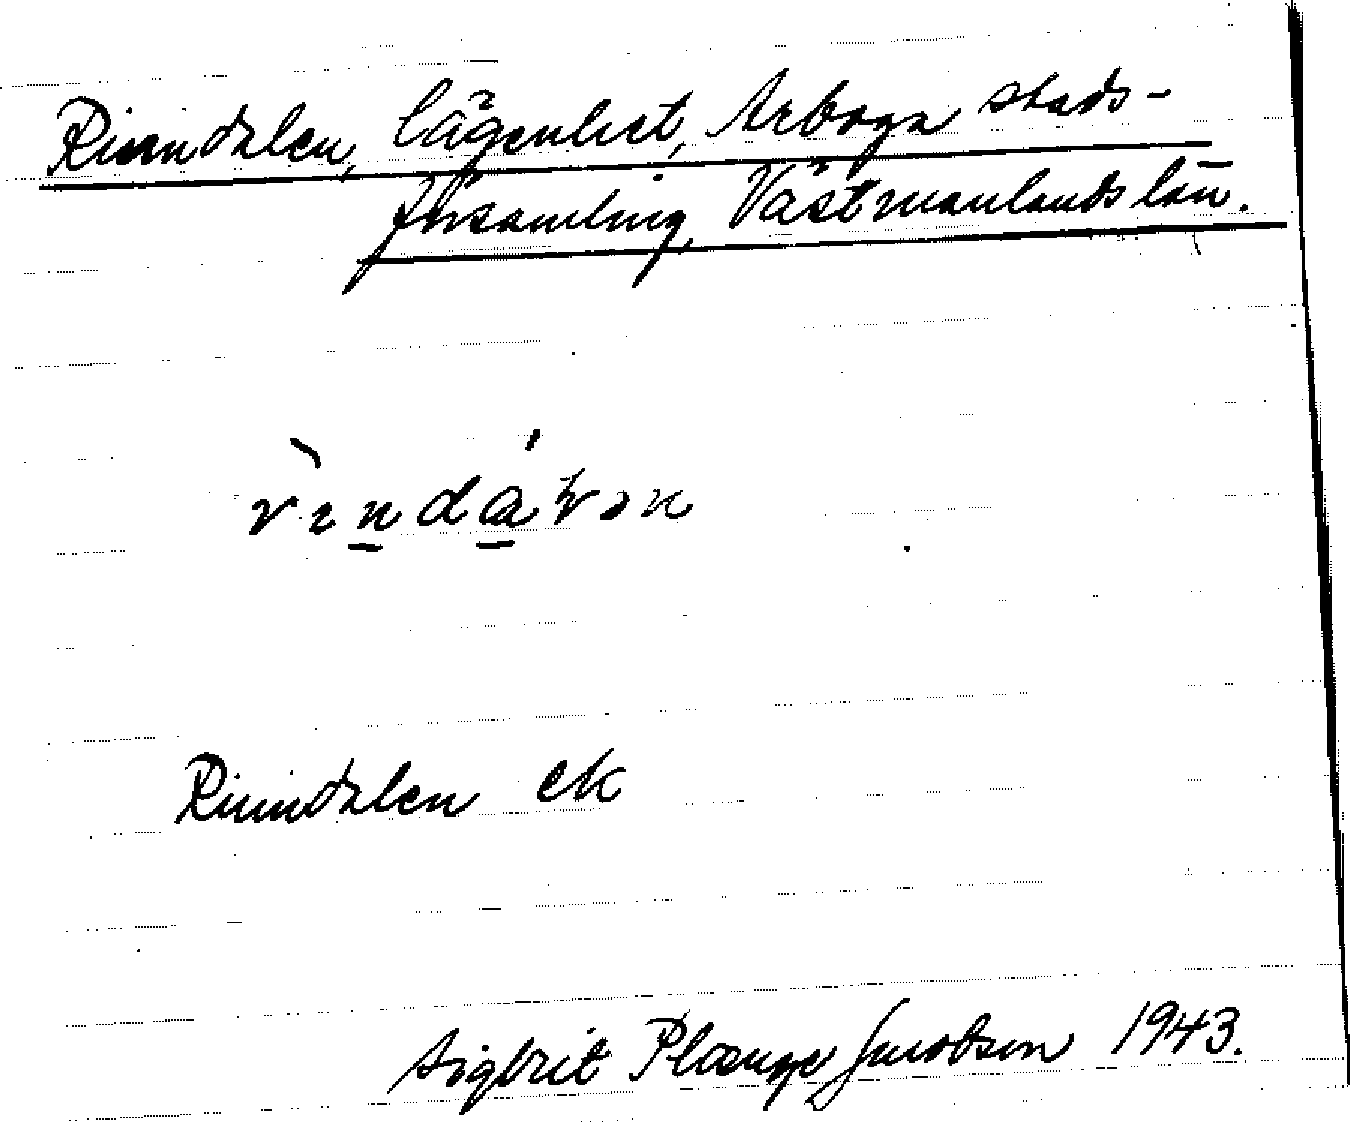 Rinndalen, lägenhet, Arboga stads-
församling, Västmanlands län.
Rinndalen ek
Sigbrit Plænge Jacobson 1943.